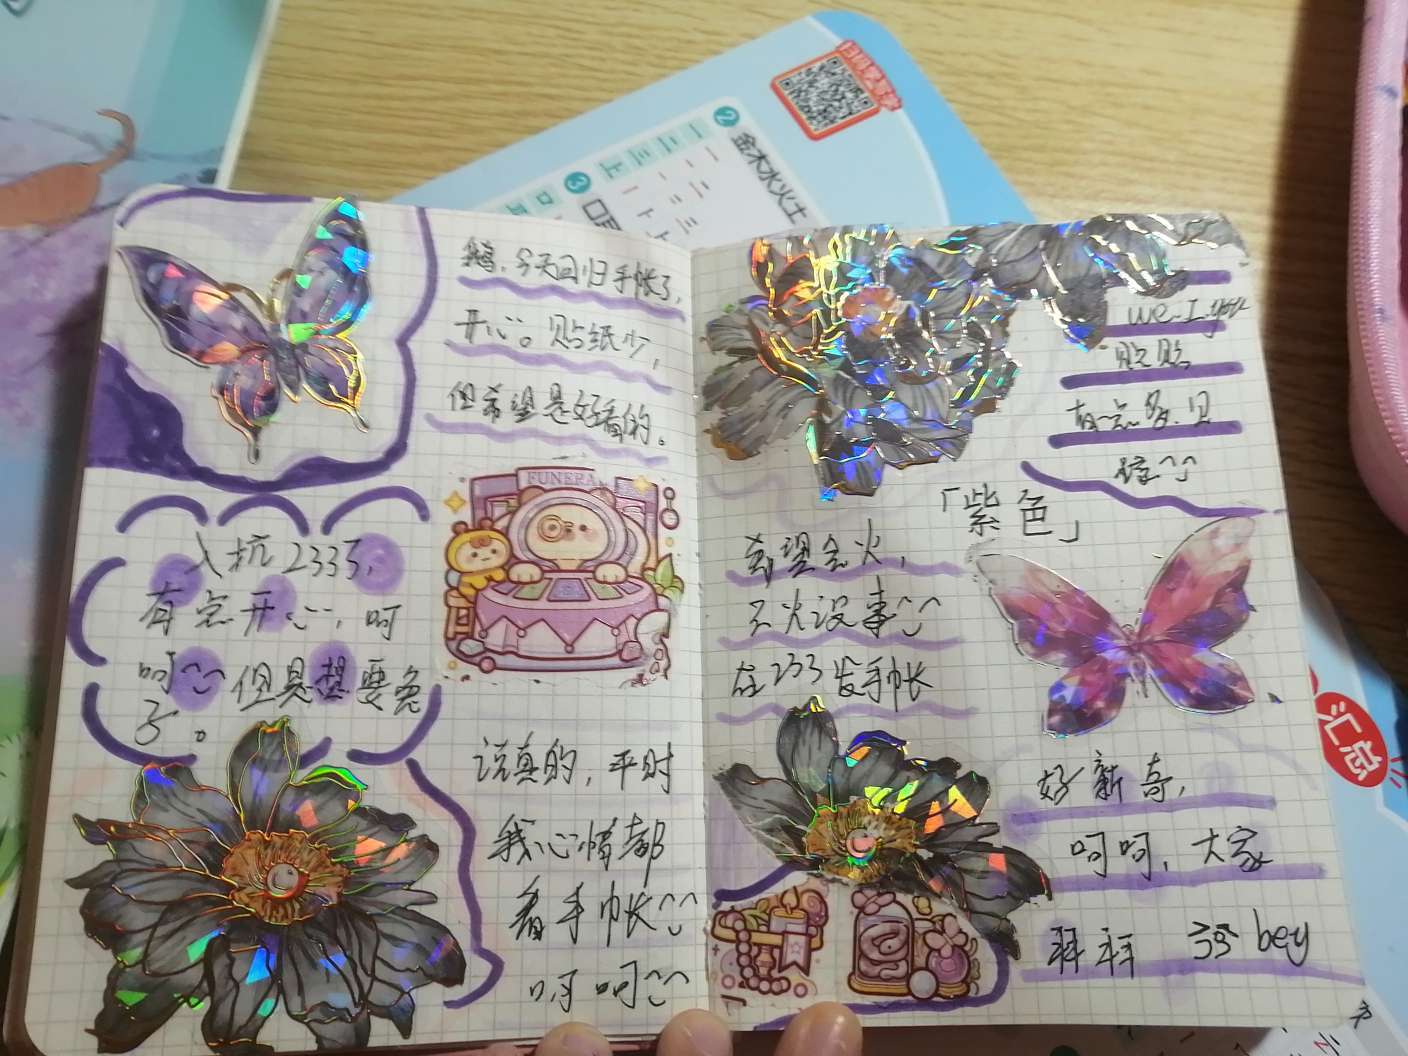 今天回归手帐了,
开心。贴纸少,
但希望是好看的。
入坑2333,
有点开心,呵
呵 但是想要兔
了。
FUNERA
说真的,平时
我心情都
看手帐
呵呵
we I you
贴贴
有点多,见
谅
「紫色」
希望会火,
不火没事
在233发手帐
好新奇,
呵呵,大家
拜拜 bey
扫码
② 金木水火土
一 二 三 上
③ 口
汇总